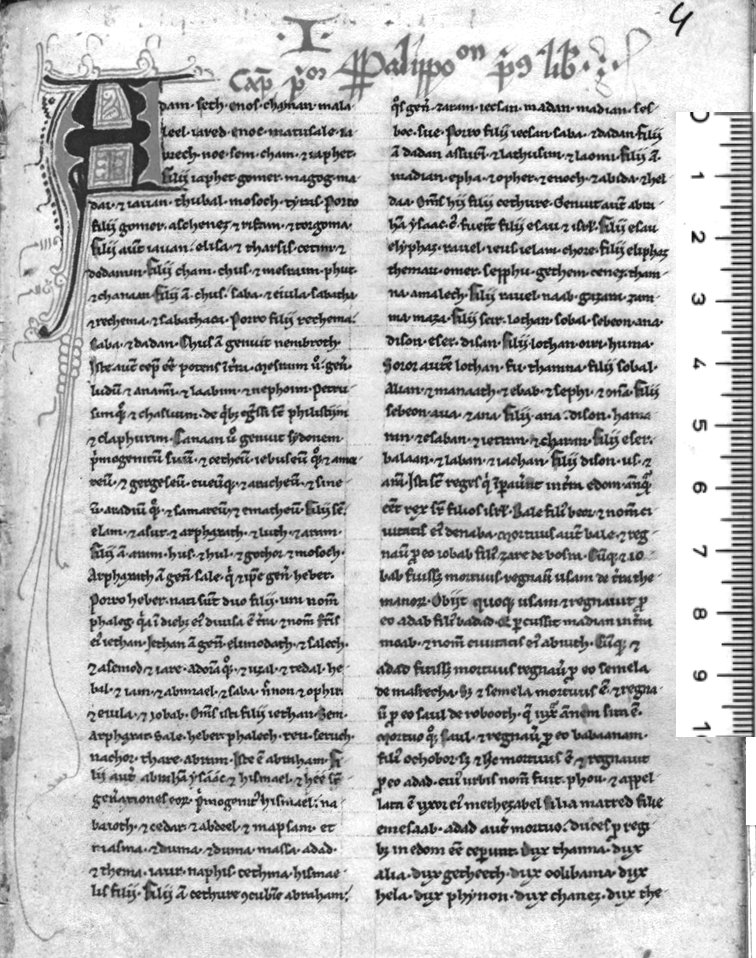 4
·I·
Cap̄ p̄or Paralippo on p̄s lib̄
Adam · seth · enos · chaynan · mala
leel · iared · enoc · matusale · la
mech · noe · sem · cham · ⁊ iaphet ·
filii iaphet gomer · magog · ma
dai · ⁊ iauan · thubal · mosoch · tyras · Porro
filii gomer · aschenez · ⁊ rifam · ⁊ torgoma ·
filii aut̄ iauan · elisa · ⁊ tharsis · cetim · ⁊
dodanim · filii cham · chus · ⁊ mesraim · phut
⁊ chanaan · filii ā chus · saba · ⁊ euila · sabatha
⁊ rechema · ⁊ sabathaca · Porro filii rechema ·
Saba · ⁊ dadan · Chus ā genuit nembroth ·
Iste aut̄ cep̄ eē potens ī t̄ra · mesraim ū gen̄
ludim · ⁊ anami · ⁊ laabim · ⁊ nephoim · Petru
sim q̄ꝫ · ⁊ chasluim · de qb; eḡssi sē philistijm
⁊ claphturim · Canaan ū genuit sydonem
p̄mogenitū suū · ⁊ cetheū · iebuseū q̄ꝫ · ⁊ amor
reū · ⁊ gergeseū · eueūq; · ⁊ aracheū · ⁊ sine
ū · aradiū q̄ꝫ · ⁊ samareū · ⁊ ematheū · filii sē ·
elam · ⁊ asur · ⁊ arphaxath · ⁊ luth · ⁊ aram ·
filii ā aram · hus · ⁊ hul · ⁊ gothor · ⁊ mosoch ·
Arphaxath ā gen̄ sale · q̄ ⁊ ip̄e gen̄ heber ·
Porro heber · nati sūt duo filii · uni nom̄
phaleg · qa ī dieb; ei diuisa ē t̄ra · ⁊ nom̄ fr̄is
ei iethan · Iethan ā gen̄ elmodath · ⁊ salech ·
⁊ asemod · ⁊ iare · adorā q̄ꝫ · ⁊ uzal · ⁊ tedal · he
bal · ⁊ iam · ⁊ abimael · ⁊ saba · ⁊ ophir ·
⁊ euila · ⁊ iobab · Om̄s isti filii iethan · Sem ·
Arphaxat · Sale · heber · phalech · reu · seruch ·
nachor · thare · abram · Iste ē abraham · Fi
lii aut̄ abrahā ysaac · ⁊ hismael · ⁊ hee sē
gen̄ationes eoꝝ · p̄mogenit hismael · na
baioth · ⁊ cedar · ⁊ abdeel · ⁊ mapsam · et
masma · ⁊ duma · massa · adad ·
⁊ thema · iatur · naphis · cethma · hismae
lis filii · Filii ā cethure ɔcubine abraham ·
q̄s gen̄ · zaram · iecsan · madan · madian · ies
boc · sue · Porro filii iecsan · saba · ⁊ dadan · filii
ā dadan assurī · ⁊ lathusim · ⁊ laomi · filii ā
madian · epha · ⁊ opher · ⁊ enoch · ⁊ abida · ⁊ hel
daa · Om̄s hij filij cethure · Genuit aut̄ abra
hā ysaac · ē fuerūt filii esau · ⁊ isr̄l · filii esau
elyphaz · rauel · ieus · ielam · chore · filii eliphaz
theman · omer · sepphu · gethem · cenez · tham
na · amalech · filii rauel · naab · gazam · zam
ma · maza · filii seir · lothan · sobal · sebeon · ana
dison · eser · disan · filii lothan · ouri · huma ·
Soror autē lothan · fu · thamna · filii sobal ·
Alian · ⁊ manaath · ⁊ ebab · ⁊ sephi · ⁊ onā · filii
sebeon · aia · ⁊ ana · filii ana · dison · hama
ran · ⁊ esaban · ⁊ ietran · ⁊ charan · filii eser ·
balaan · ⁊ laban · ⁊ iachan · filii dison · us · ⁊
aran · Isti sē reges q̄ ip̄auēr̄t in t̄ra edom · anq̄
eēt rex sr̄ filios isr̄l · Bale fili beor · ⁊ nom̄ ci
uitatis ei denaba · mortuus aut̄ bale · ⁊ reg
nau̅ p̄ eo iobab fili zare de bosra · Cūq; ⁊ io
bab fuiss; mortuus · regnau̅ usam de t̄ra the
manoꝝ · Obijt quoq; usam · ⁊ regnauit p̄
eo adab fili badad · Q̄ pcussit madian in t̄ra
moab · ⁊ nom̄ ciuitatis ei abuith · Cūq; ⁊
adad fuiss; mortuus regnau̅ p̄ eo semela
de masrecha · S; ⁊ semela mortuus ē · ⁊ regna
u̅ p̄ eo saul de robooth · q̄ iux̄ amnem sita ē ·
Mortuo q̄ꝫ saul · ⁊ regnau̅ p̄ eo balaanam ·
fili ochobor · S; ⁊ he mortuus ē · ⁊ regnauit
p̄ eo adad · cui urbis nom̄ fuit · phou · ⁊ appel
lata ē uxor ei methezabel filia matred filie
emesaab · adad aut̄ mortuo · duces p̄ regi
b; in edom eē ceperunt · Dux thamna · dux
alia · dux getheech · dux oolibama · dux
hela · dux phynon · dux chanez · dux the
0
1
2
3
4
5
6
7
8
9
1